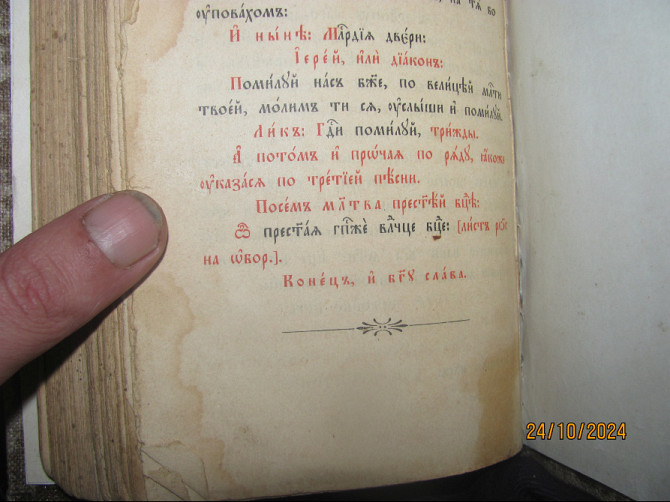 на тѧ бо
ᲂу҆пова́хомъ:
И҆ ны́нѣ: Млⷭ҇рдїѧ две́ри:
І҆ере́й, и҆лѝ дїа́конъ:
Поми́лꙋй на́съ бж҃е, по вели́цѣй млⷭ҇ти
твое́й, мо́лимъ ти сѧ, ᲂу҆слы́ши и҆ поми́лꙋй.
Ли́къ: Гдⷭ҇и поми́лꙋй, три́жды.
А҆ пото́мъ и҆ прѡ́чаѧ по рѧ́дꙋ, ꙗ҆́коже
ᲂу҆каза́сѧ по тре́тїей пѣ́сни.
Посе́мъ мл҃тва прест҃ѣ́й бц҃ѣ:
Ѽ прест҃а́ѧ гпⷭ҇жѐ влⷣчце бц҃е: [ли́стъ рѯ҃
на ѡ҆бор.].
Коне́цъ, и҆ бг҃ꙋ сла́ва.
24/10/2024